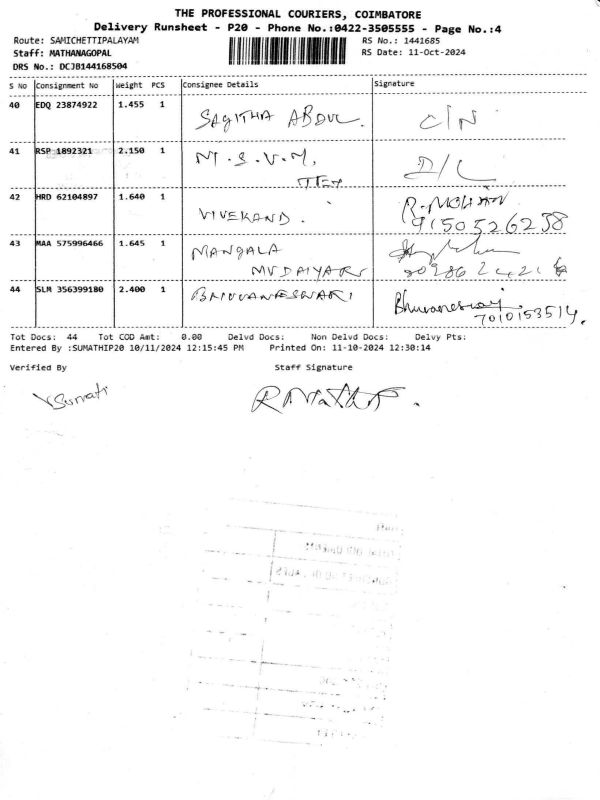 THE PROFESSIONAL COURIERS, COIMBATORE
Delivery Runsheet - P20 - Phone No.:0422-3505555 - Page No.:4
Route: SAMICHETTIPALAYAM RS No.: 1441685
Staff: MATHANAGOPAL RS Date: 11-Oct-2024
DRS No.: DCJB144168504
S No Consignment No Weight PCS Consignee Details Signature
40 EDQ 23874922 1.455 1 SAGITHA ABDUL. C/N
41 RSP 1892321 2.150 1 M.S.V.M, D/L
42 HRD 62104897 1.640 1 VIVEKAND. R.MOHAN
9150526238
43 MAA 575996466 1.645 1 MANGALA
MUDAIYAR
44 SLM 356399180 2.400 1 BHUVANESWARI Bhuvaneswari
7010153514.
Tot Docs: 44 Tot COD Amt: 0.00 Delvd Docs: Non Delvd Docs: Delvy Pts:
Entered By :SUMATHIP20 10/11/2024 12:15:45 PM Printed On: 11-10-2024 12:30:14
Verified By Staff Signature